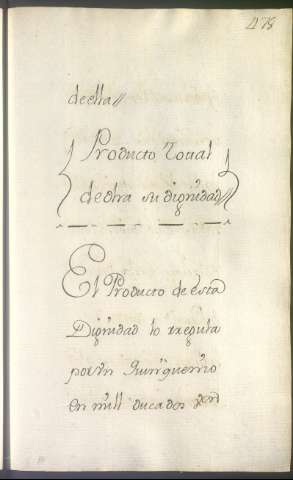 478
de ella//
Producto Total
de dha su dignidad//
El Producto de esta
Dignidad lo regula
por Un Quinquenio
en mill ducados